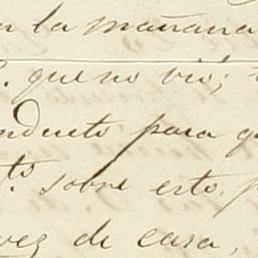 n la mañana
que no vió;
nducto para q
to. sobre esto, p
vez de casa,